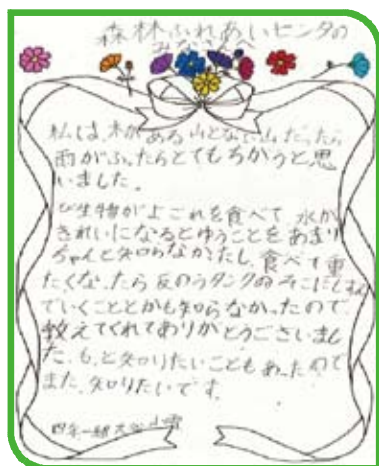 森林ふれあいセンタの
みなさんへ
私は、木がある山となで山だったら
雨がふったらとてもちがうと思
いました。
び生物がよごれを食べて水が
きれいになるとゆうことをあまり
ちゃんと知らなかたし、食べて重
たくなったら反のうタンクのそこにしずん
でいくこととかも知らなかったので
教えてくれてありがとうございまし
た。もっと知りたいこともあったので
また、知りたいです。
四年一組